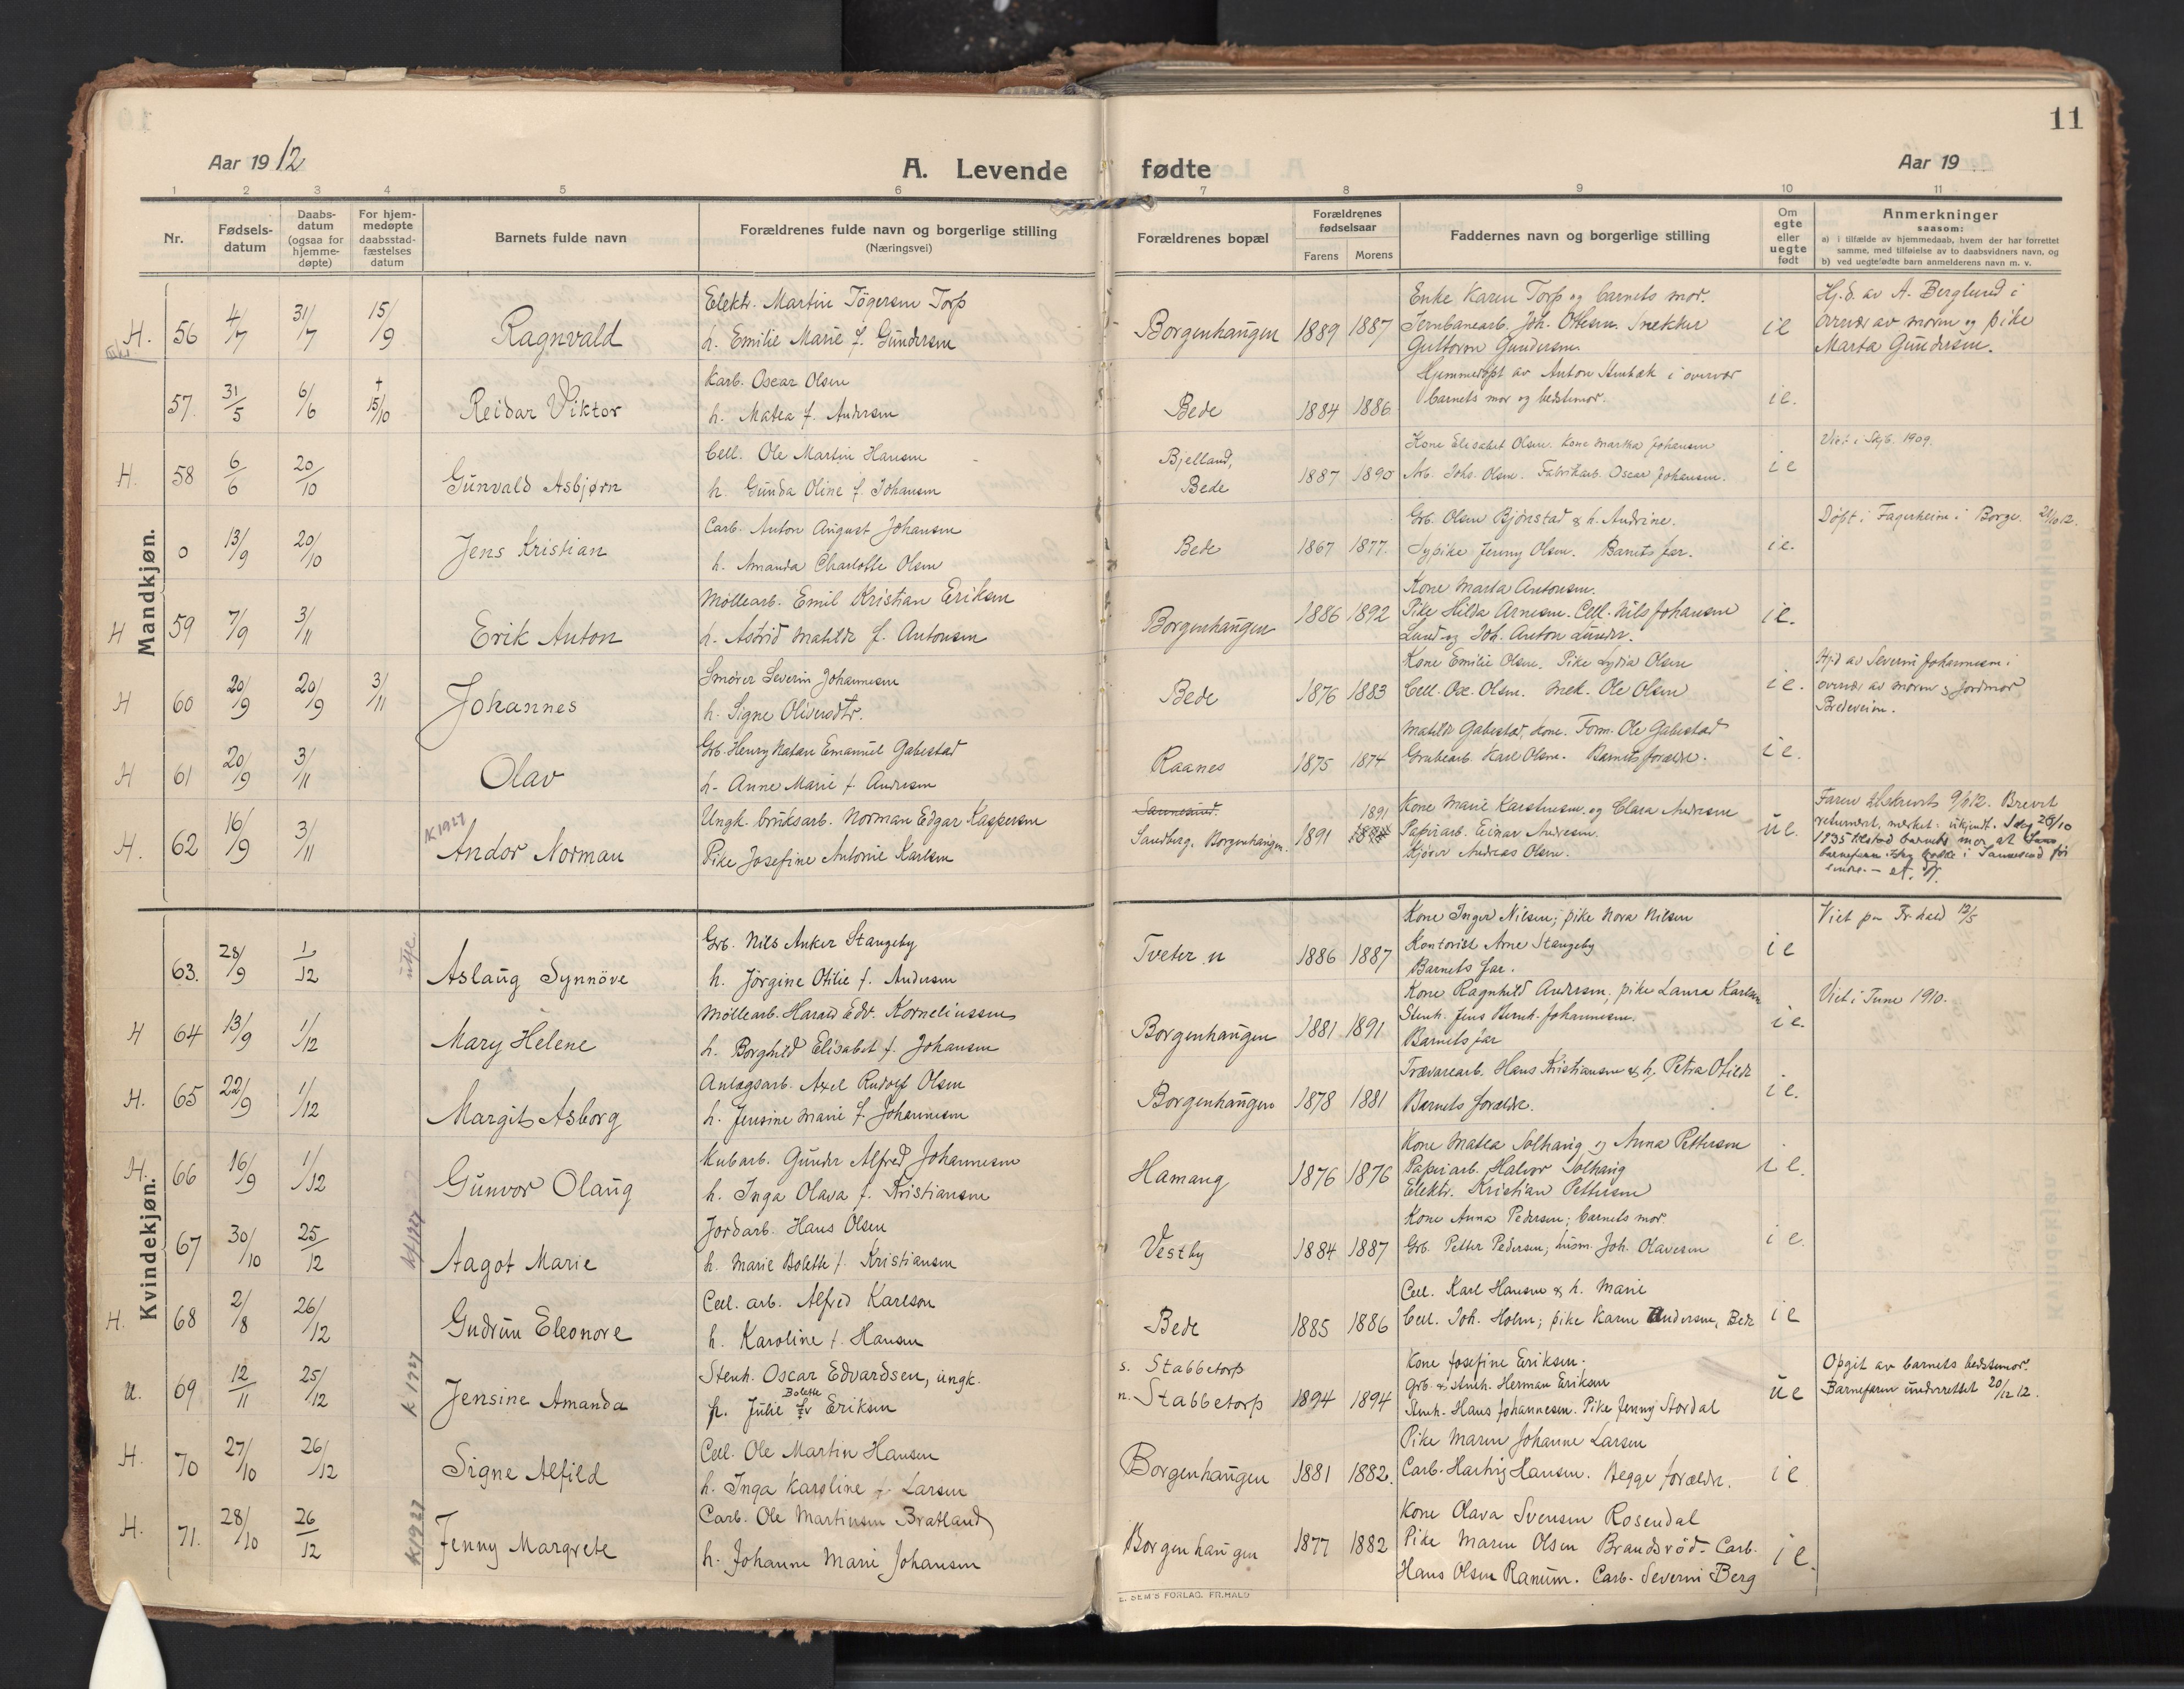 11
Aar 1912
A. Levende fødte
Aar 19
1 2 3 4 5 6 7 8 9 10 11
Nr.
Fødsels-
datum
Daabs-
datum
(ogsaa for
hjemme-
døpte)
For hjem-
medøpte
daabsstad-
fæstelses
datum
Barnets fulde navn
Forældrenes fulde navn og borgerlige stilling
(Næringsvei)
Forældrenes bopæl
Forældrenes
fødselsaar
Farens Morens
Faddernes navn og borgerlige stilling
Om
egte
eller
uegte
født
Anmerkninger
saasom:
a) i tilfælde av hjemmedaab, hvem der har forrettet
samme, med tilføielse av to daabsvidners navn, og
b) ved uegtefødte barn anmelderens navn m. v.
Mandkjøn.
H. 56 4/7 31/7 15/9 Ragnvald
Elektr. Martin Tögersen Torp
h. Emilie Marie f. Gundersen
Borgenhaugen 1889 1887
Enke Karen Torp og barnets mor.
Jernbanearb. Joh. Ottesen.
Guttorm Gundersen.
ie
Hj.d. av A. Berglund i
overvær av moren og pike
Marta Gundersen.
57. 31/5 6/6 † 15/10 Reidar Viktor
Karb. Oscar Olsen
h. Matea f. Andersen
Bede 1884 1886
Hjemmedøpt av Anton i overvær
barnets mor og bedstemor.
ie.
H. 58 6/6 20/10 Gunvald Asbjørn
Cell. Ole Martin Hansen
h. Gunda Oline f. Johansen
Bjelland,
Bede 1887 1890
Kone Elisabet Olsen. Kone Martha Johansen
Arb. Johs. Olsen. Fabrikarb. Oscar Johansen.
ie
Viet i Skjb. 1909.
0 13/9 20/10 Jens Kristian
Carb. Anton August Johansen
h. Amanda Charlotte Olsen
Bede 1867 1877.
Grb. Olsen Bjönstad & h. Andrine.
Sypike Jenny Olsen. Barnets far.
ie.
Döpt i Fagerheim i Borge.
H 59 7/9 3/11 Erik Anton
Möllearb. Emil Kristian Eriksen
h. Astrid Matilde f. Antonsen
Borgenhaugen 1886 1892
Kone Marta Antonsen.
Pike Hilda Arnesen. Cell. Nils Johansen
Lund og Joh. Anton Lunder.
ie.
H 60 20/9 20/9 3/11 Johannes
Smörer Severin Johannesen
h. Signe Oliversdtr.
Bede 1876 1883
Kone Emilie Olsen. Pike Lydia Olsen
Cell. Osc. Olsen. Mek. Ole Olsen
ie.
Hjd av Severin Johannesen i
overvær av moren & jordmor
Bredeveien.
H 61 20/9 3/11 Olav
Grb. Henry Natan Emanuel Gabestad
h. Anne Marie f. Andersen
Raanes 1875 1874
Matilde Gabestad, kone. Form. Ole Gabestad
Grubearb. Karl Olsen. Barnets forældre.
ie.
H. 62 16/9 3/11 K1927 Andor Norman
Ungk. bruksarb. Norman Edgar Kaspersen
Pike Josefine Antonie Karlsen
Sannesund.
Sandberg, Borgenhaugen. 1891 1891
Kone Marie Karstensen og Clara Andersen
Papirarb. Einar Andersen.
Kjörer Andreas Olsen.
ue.
Faren tilskrevet 9/12. Brevet
returnert, merket: ukjendt.
Kvindekjøn.
63. 28/9 1/12 Aslaug Synnöve
Grb. Nils Anker Stangeby
h. Jörgine Otilie f. Andersen
Tveter n 1886 1887
Kone Inger Nilsen; pike Nora Nilsen
Kontorist Arne Stangeby
Barnets far.
ie
Viet paa Fr.hald 12/5
H 64 13/9 1/12 Mary Helene
Möllearb. Harald Edv. Korneliussen
h. Borghild Elisabet f. Johansen
Borgenhaugen 1881 1891
Kone Ragnhild Andersen, pike Laura Karlsen
Stenh. Jens Bernh. Johannesen.
Barnets far
ie.
Viet i Tune 1910.
H. 65 22/9 1/12 Margit Asborg
Anlægsarb. Axel Rudolf Olsen
h. Jensine Marie f. Johannesen
Borgenhaugen 1878 1881
Trævarearb. Hans Kristiansen & h. Petra Otilde
Barnets forældre.
ie.
H. 66 16/9 1/12 Gunvor Olaug
Kubarb. Gunder Alfred Johannesen
h. Inga Olava f. Kristiansen
Hamang 1876 1876
Kone Matea Solhaug og Anna Pettersen
Papirarb. Halvor Solhaug
Elektr. Kristian Pettersen
ie.
67 30/10 25/12 Aagot Marie
Jordarb. Hans Olsen
h. Marie Bolette f. Kristiansen
Vestby 1884 1887
Kone Anna Pedersen; barnets mor.
Grb. Petter Pedersen; husm. Joh. Olavesen
ie.
H. 68 2/8 26/12 Gudrun Eleonore
Cell. arb. Alfred Karlson
h. Karoline f. Hansen
Bede 1885 1886
Cell. Karl Hansen & h. Marie
Cell. Joh. Holm; pike Karen Andersen, Bede
ie
u. 69 12/11 25/12 K 1927 Jensine Amanda
Stenh. Oscar Edvardsen, ungk.
p. Julie Bolette Eriksen
s. Stabbetorp
n. Stabbetorp 1894 1894
Kone Josefine Eriksen;
Grb. & stenh. Herman Eriksen
Stenh. Hans Johannesen. Pike Jenny Stordal
ue
Opgit av barnets bedstemor.
Barnefaren underrettet 20/12 12.
H. 70 27/10 26/12 Signe Alfild
Cell. Ole Martin Hansen
h. Inga Karoline f. Larsen
Borgenhaugen 1881 1882.
Pike Maren Johanne Larsen
Carb. Hartvig Hansen. Begge forældre.
ie
H. 71. 28/10 26/12 K1927 Jenny Margrete
Carb. Ole Martinsen Bratland
h. Johanne Marie Johansen
Borgenhaugen 1877 1882
Kone Olava Svensen Rosendal
Pike Maren Olsen Brandsröd. Carb.
Hans Olsen Ranum. Carb. Severin Berg
ie.
E. SEM'S FORLAG. FR.HALD